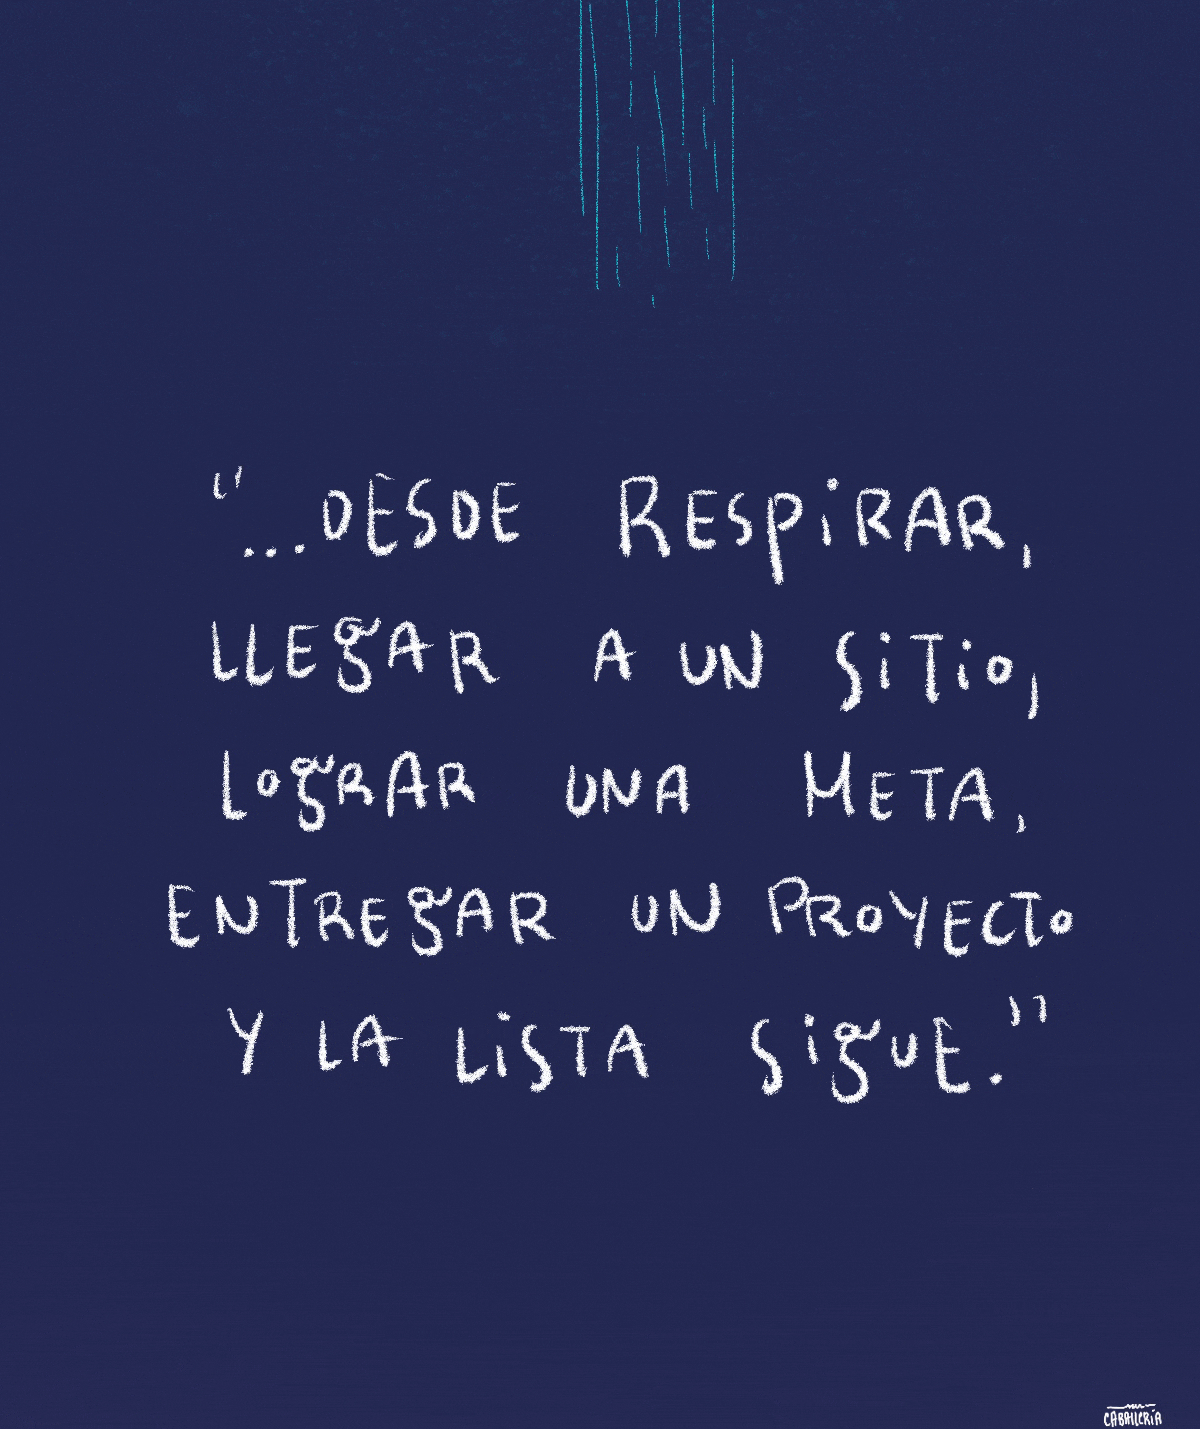 “...DESDE RESPiRAR,
LLEgAR A UN SiTio,
LogRAR UNA META,
ENTREgAR UN PRoYECTo
Y LA LiSTA SigUE.”
CABALLERiA